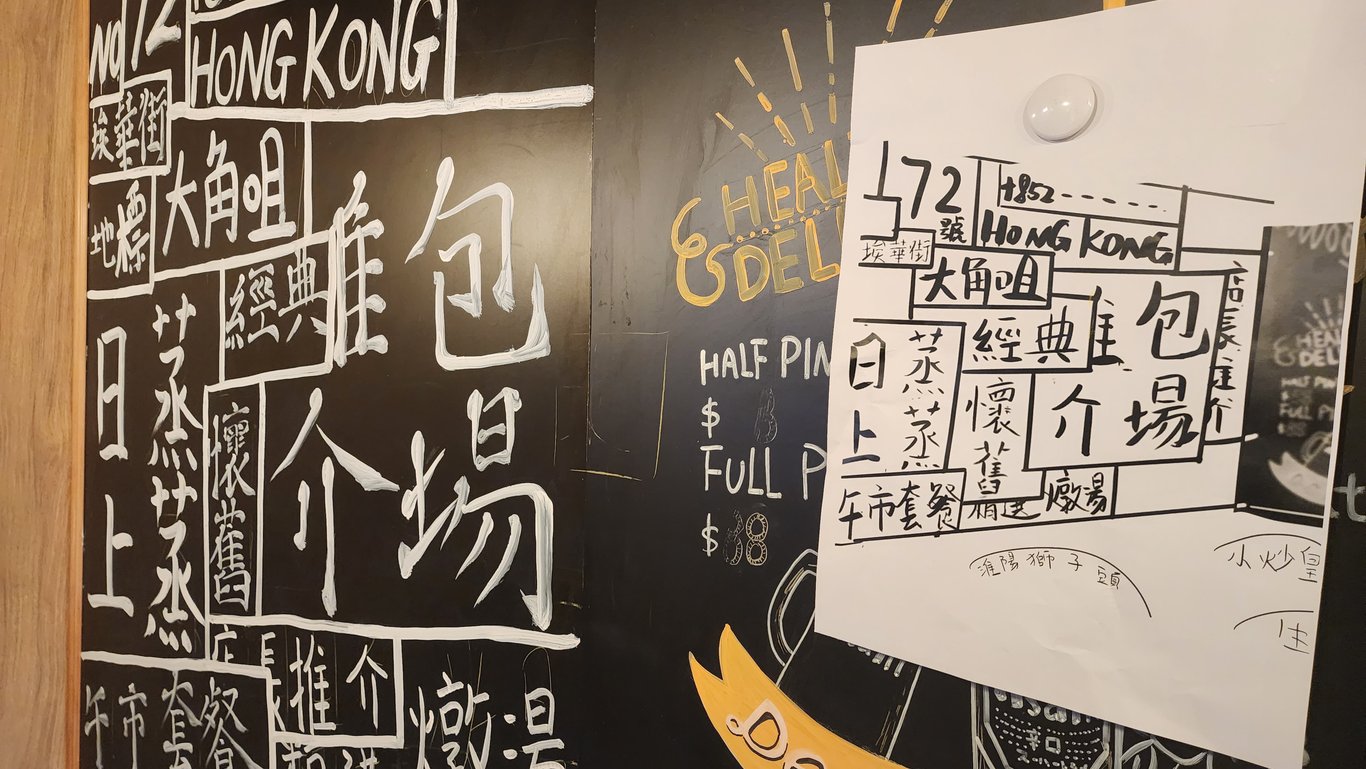 NO
72
HONG KONG
埃華街
地標
大角咀
經典
包
場
介
日上
蒸蒸
懷舊
店長
推介
午市套餐
燉湯
HEAL
& DEL
HALF PIN
$
FULL P
$ 88
72號
+852
HONG KONG
埃華街
大角咀
經典
包
場
介
店長推介
日上
蒸蒸
懷舊
午市套餐
精選
燉湯
淮陽獅子頭
小炒皇
HEAL
DEL
HALF PIN
FULL P
辛口